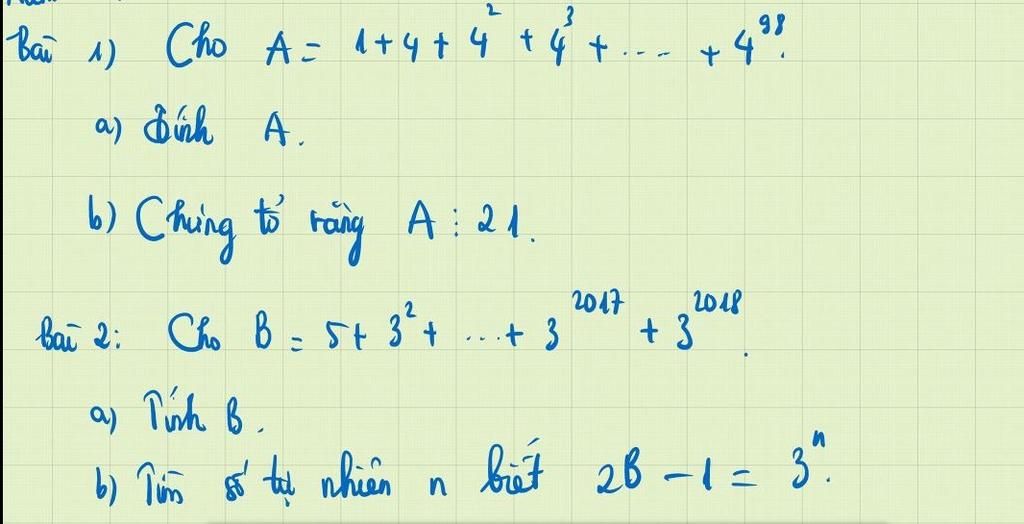 Bài 1) Cho A = 1 + 4 + 4² + 4³ + .... + 4⁹⁸.
a) Tính A.
b) Chứng tỏ rằng A ⋮ 21.
Bài 2: Cho B = 5 + 3² + ... + 3²⁰¹⁷ + 3²⁰¹⁸.
a) Tính B.
b) Tìm số tự nhiên n biết 2B - 1 = 3ⁿ.